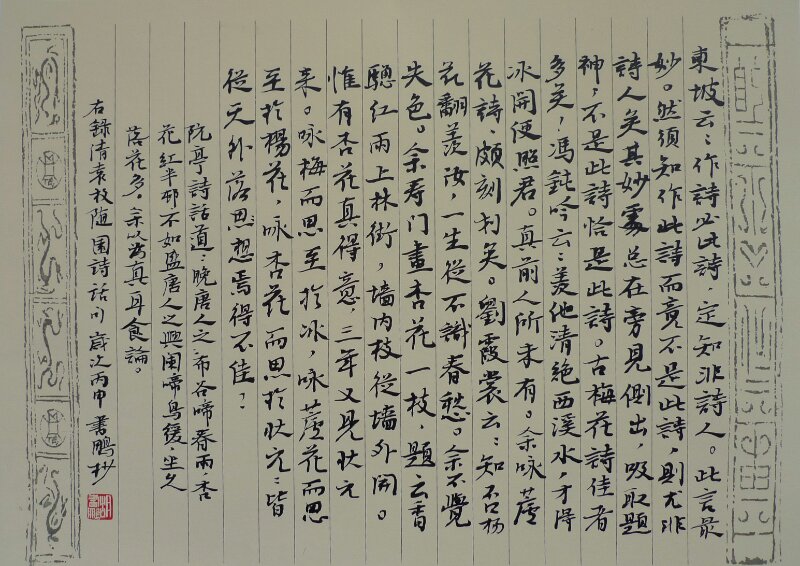 東坡云：作詩必此詩，定知非詩人。此言最
妙。然須知作此詩而竟不是此詩，則尤非
詩人矣其妙處总在旁見側出，吸取題
神，不是此詩恰是此詩。古梅花詩佳者
多矣，馮鈍吟云：羨他清絶西溪水，才得
冰開便照君。真前人所未有。余咏蘆
花詩，頗刻划矣。劉霞裳云：知否楊
花翻羨汝，一生從不識春愁。余不覺
失色。余寿门畫杏花一枝，題云香
驄红雨上林街，墻内枝從墻外開。
惟有杏花真得意，三年又見狀元
来。咏梅而思至於冰，咏蘆花而思
至於楊花，咏杏花而思於状元：皆
從天外落思想焉得不佳？
阮亭詩話道：晚唐人之布谷啼春雨，杏
花紅半邨不如盛唐人之興闌啼鳥緩，坐久
落花多。余以为真耳食論。
右録清袁枚随園詩話句 歲次丙申 書鵬抄